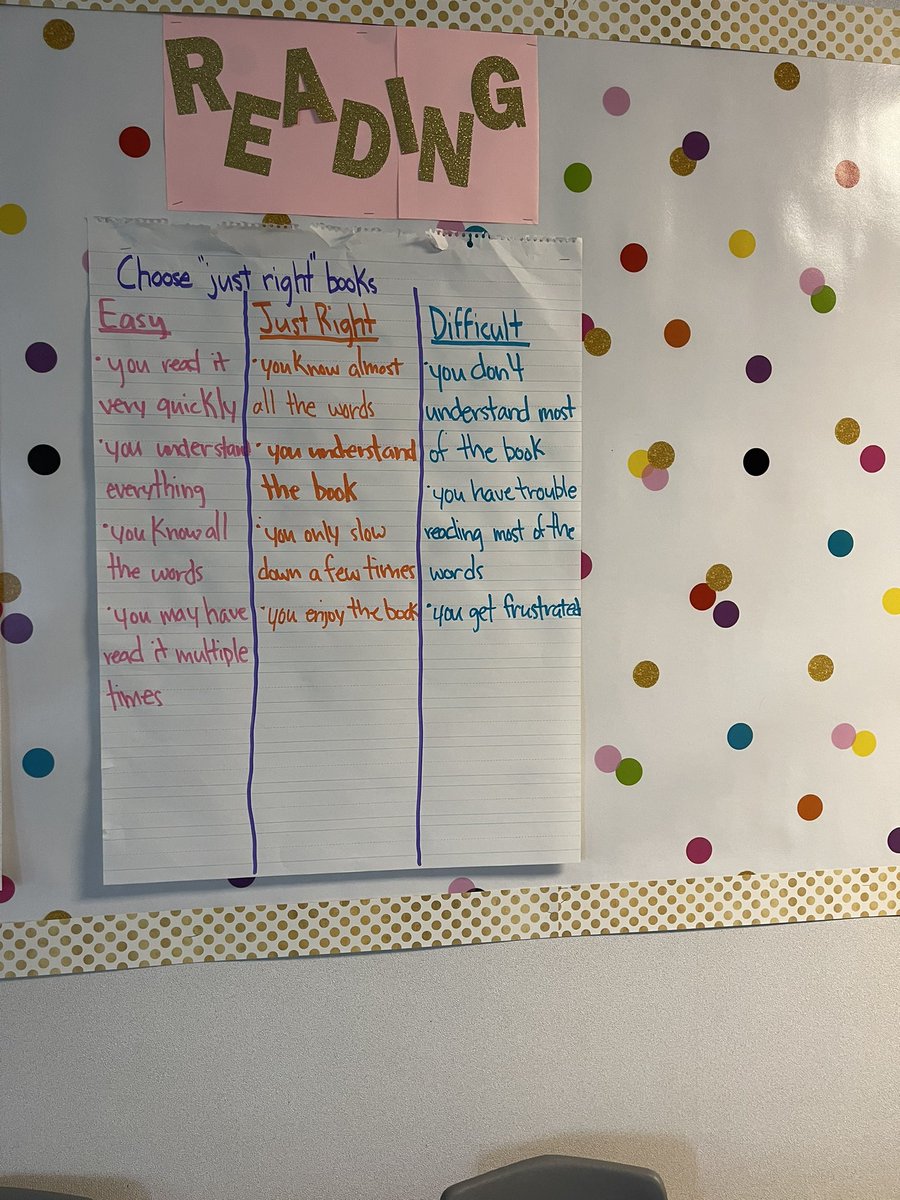 READING
Choose "just right" books
Easy
• you read it
very quickly
• you understand
everything
• you know all
the words
• you may have
read it multiple
times
Just Right
• you know almost
all the words
• you understand
the book
• you only slow
down a few times
• you enjoy the book
Difficult
• you don't
understand most
of the book
• you have trouble
reading most of the
words
• you get frustrated